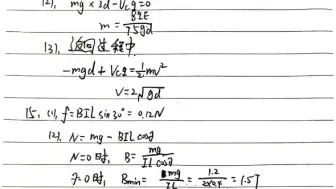 (2), mg×3d-Vcq=0
m=82E/75gd
(3), 返回过程中
-mgd+Vcq=½mv²
V=2√gd
15, (1), f=BIL sin30°=0.12N
(2), N=mg-BILcosθ
N=0时, B=mg/ILcosθ
θ=0时, Bmin=mg/IL=1.2/2×0.4=1.5T